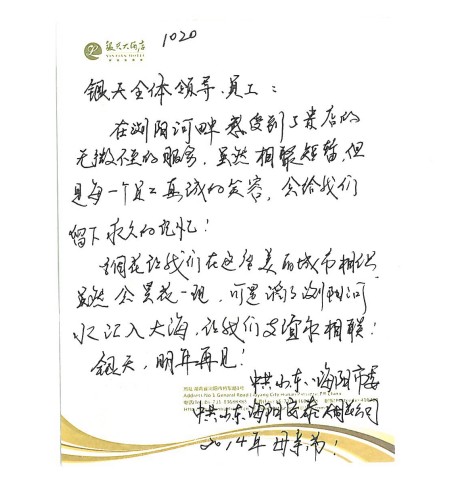 银天大酒店
YINTIAN HOTEL
1020
银天全体领导、员工：
在浏阳河畔感受到了贵店的
无微不至的服务，虽然相聚短暂，但
是每一个员工真诚的笑容，会给我们
留下永久的记忆！
让我们在这座美丽城市相识
虽然 昙花一现，可是 浏阳河
水汇入大海，让我们友谊 相联！
银天，明年再见！
中共山东海阳市委
中共山东海阳
2014年母亲节！